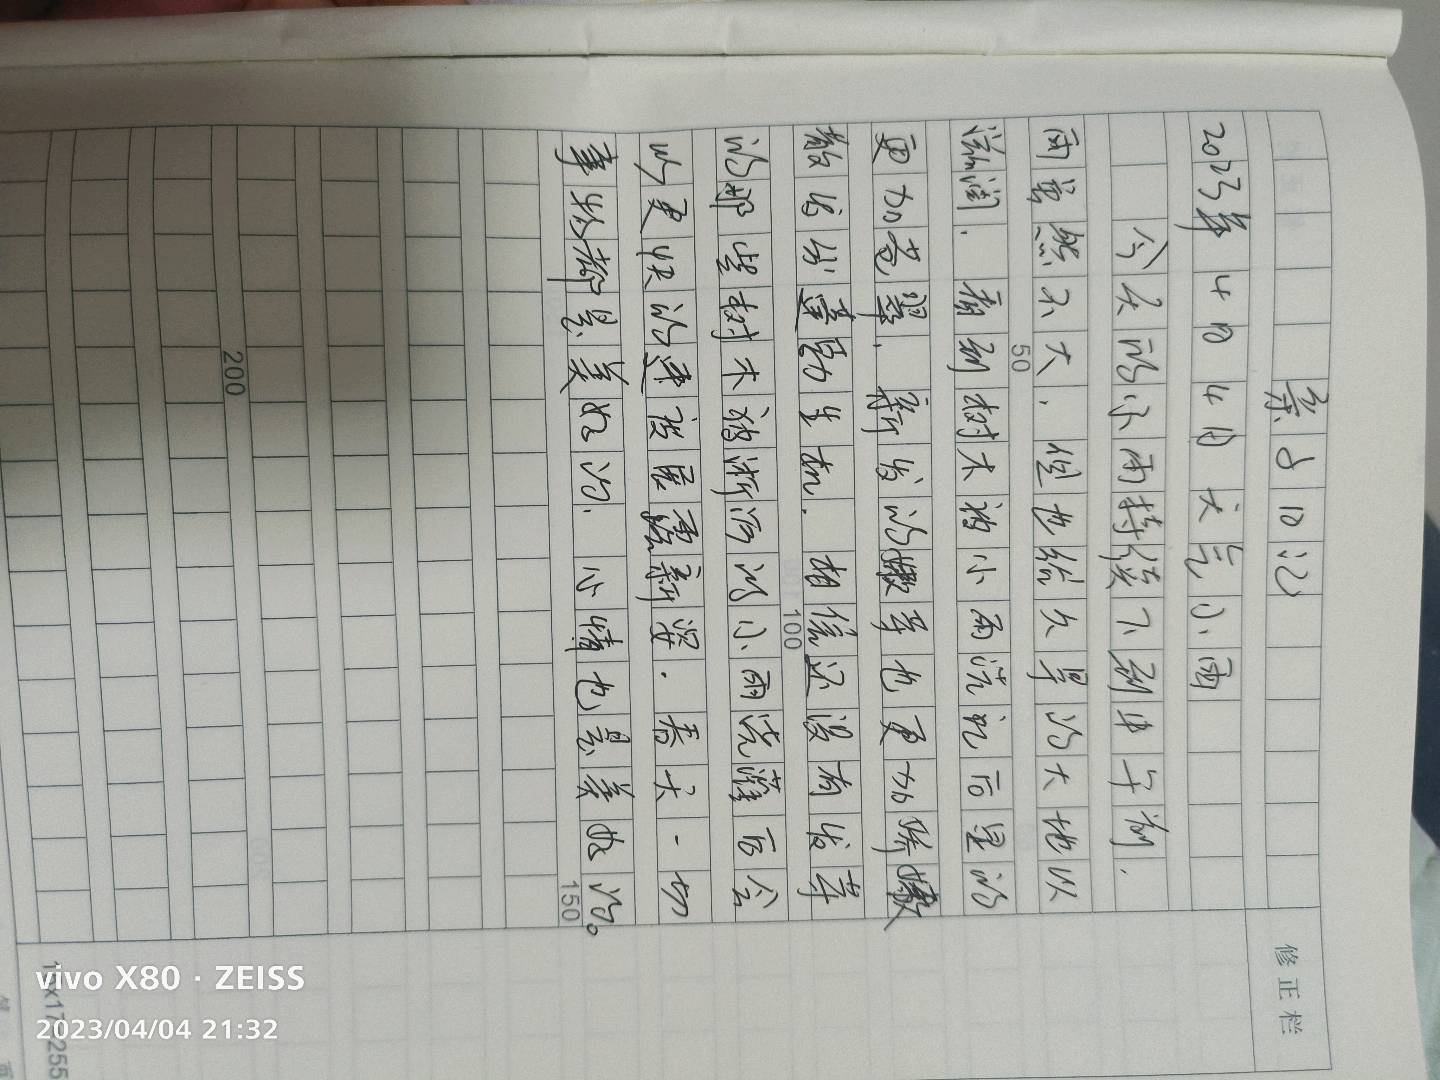 亲子日记
2023年4月4日 天气小雨
今天的小雨持续不到中午前.
雨当然不大. 但也给久旱的大地以
滋润. 看到树木被小雨洗礼后显的
更加苍翠. 新发的嫩芽也更加娇嫩
散发勃蓬勃生机. 相信还没有发芽
的那些树木被淅沥的小雨浇灌后会
以更快的速度展露新姿. 春天一切
事物都是美好的. 心情也是美好的。
50
100
150
200
修正栏
15x17=255
vivo X80 · ZEISS
2023/04/04 21:32